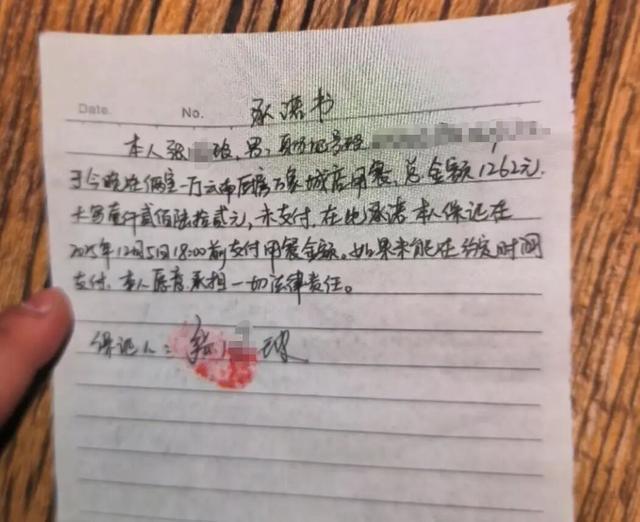 Date. No. 承诺书
本人张 玻,男,身份证号码
于今晚在俩室一厅云南厨房万象城店用餐,总金额1262元.
大写壹仟贰佰陆拾贰元,未支付.在此承诺本人保证在
2025年12月5日18:00前支付用餐金额。如果未能在约定时间
支付.本人愿意承担一切法律责任。
保证人:张 玻